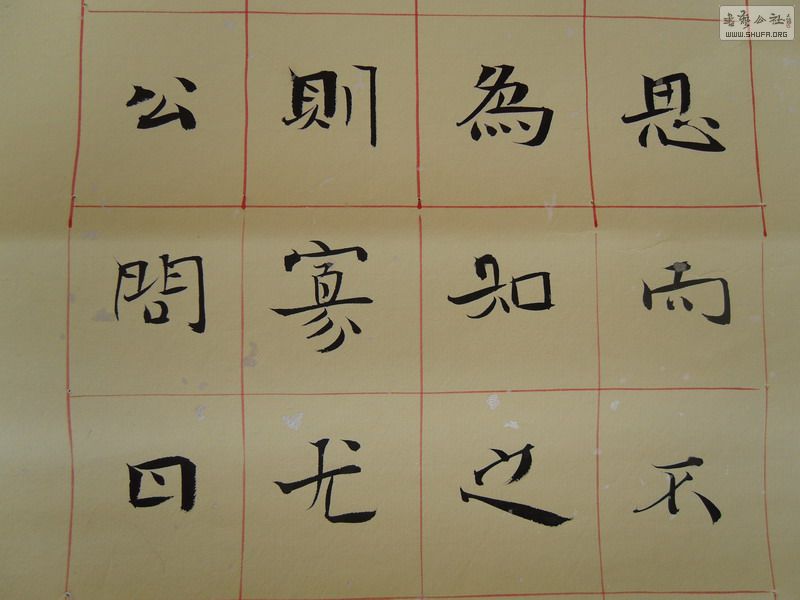 思而不
為知之
則寡尤
公問曰
書藝公社
WWW.SHUFA.ORG